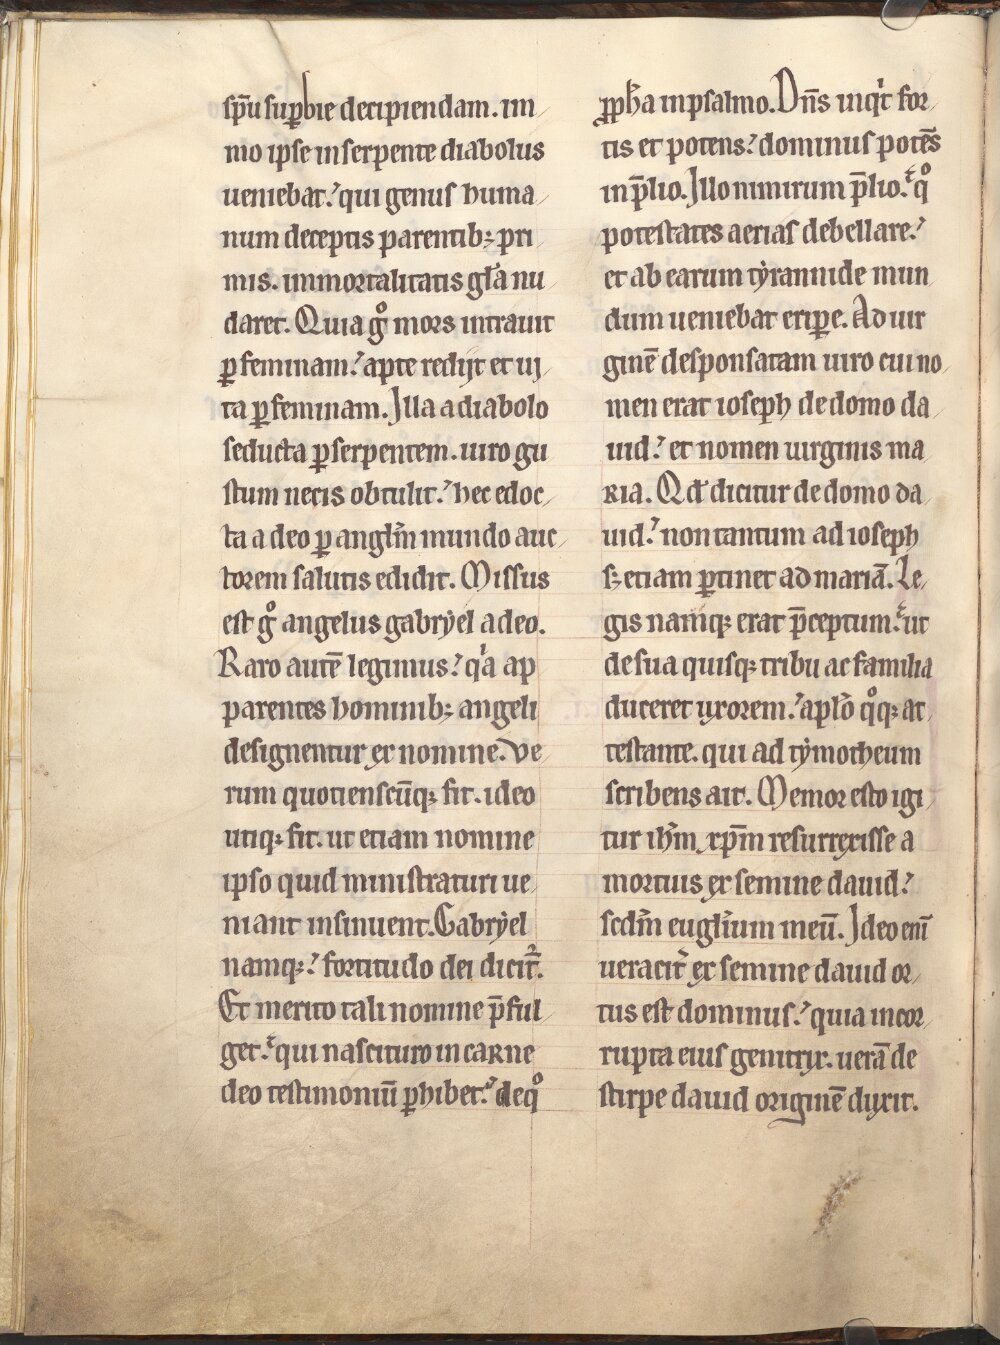 sp̄u suꝑbie decipiendam. im
mo ipse in serpente diabolus
ueniebat. qui genus huma
num deceptis parentib; pri
mis. immortalitatis gła nu
daret. Quia gͦ mors intrauit
ꝑ feminam. apte redijt et ui
ta ꝑ feminam. Illa a diabolo
seducta ꝑ serpentem. uiro gu
stum necis obtulit. hec edoc
ta a deo ꝑ angłm mundo auc
torem salutis edidit. Missus
est gͦ angelus gabryel a deo.
Raro autē legimus. qͣa ap
parentes hominib; angeli
designentur ex nomine. Ve
rum quotienscūq; fit. ideo
utiq; fit. ut etiam nomine
ipso quid ministraturi ue
niant insinuent. Gabryel
namq;. fortitudo dei dicit᷑.
Et merito tali nomine p̄ful
get. qui nascituro in carne
deo testimoniū ꝑhibet. de qͦ
ꝓph̄a in psalmo. Dn̄s inqͥt for
tis et potens. dominus potēs
in p̄lio. Illo nimirum p̄lio. qͦ
potestates aerias debellare.
et ab earum tyrannide mun
dum ueniebat eriꝑe. Ad uir
ginē desponsatam uiro cui no
men erat ioseph de domo da
uid. et nomen uirginis ma
ria. Qđ dicitur de domo da
uid. non tantum ad ioseph
s; etiam ꝑtinet ad mariā. Le
gis namq; erat p̄ceptum. ut
de sua quisq; tribu ac familia
duceret uxorem. apło qͦq; at
testante. qui ad tymotheum
scribens ait. Memor esto igi
tur ih̄m xp̄m resurrexisse a
mortuis ex semine dauid.
scd̄m eugłium meū. Ideo enī
ueracit᷑ ex semine dauid or
tus est dominus. quia incor
rupta eius genitrix. uerā de
stirpe dauid originē duxit.